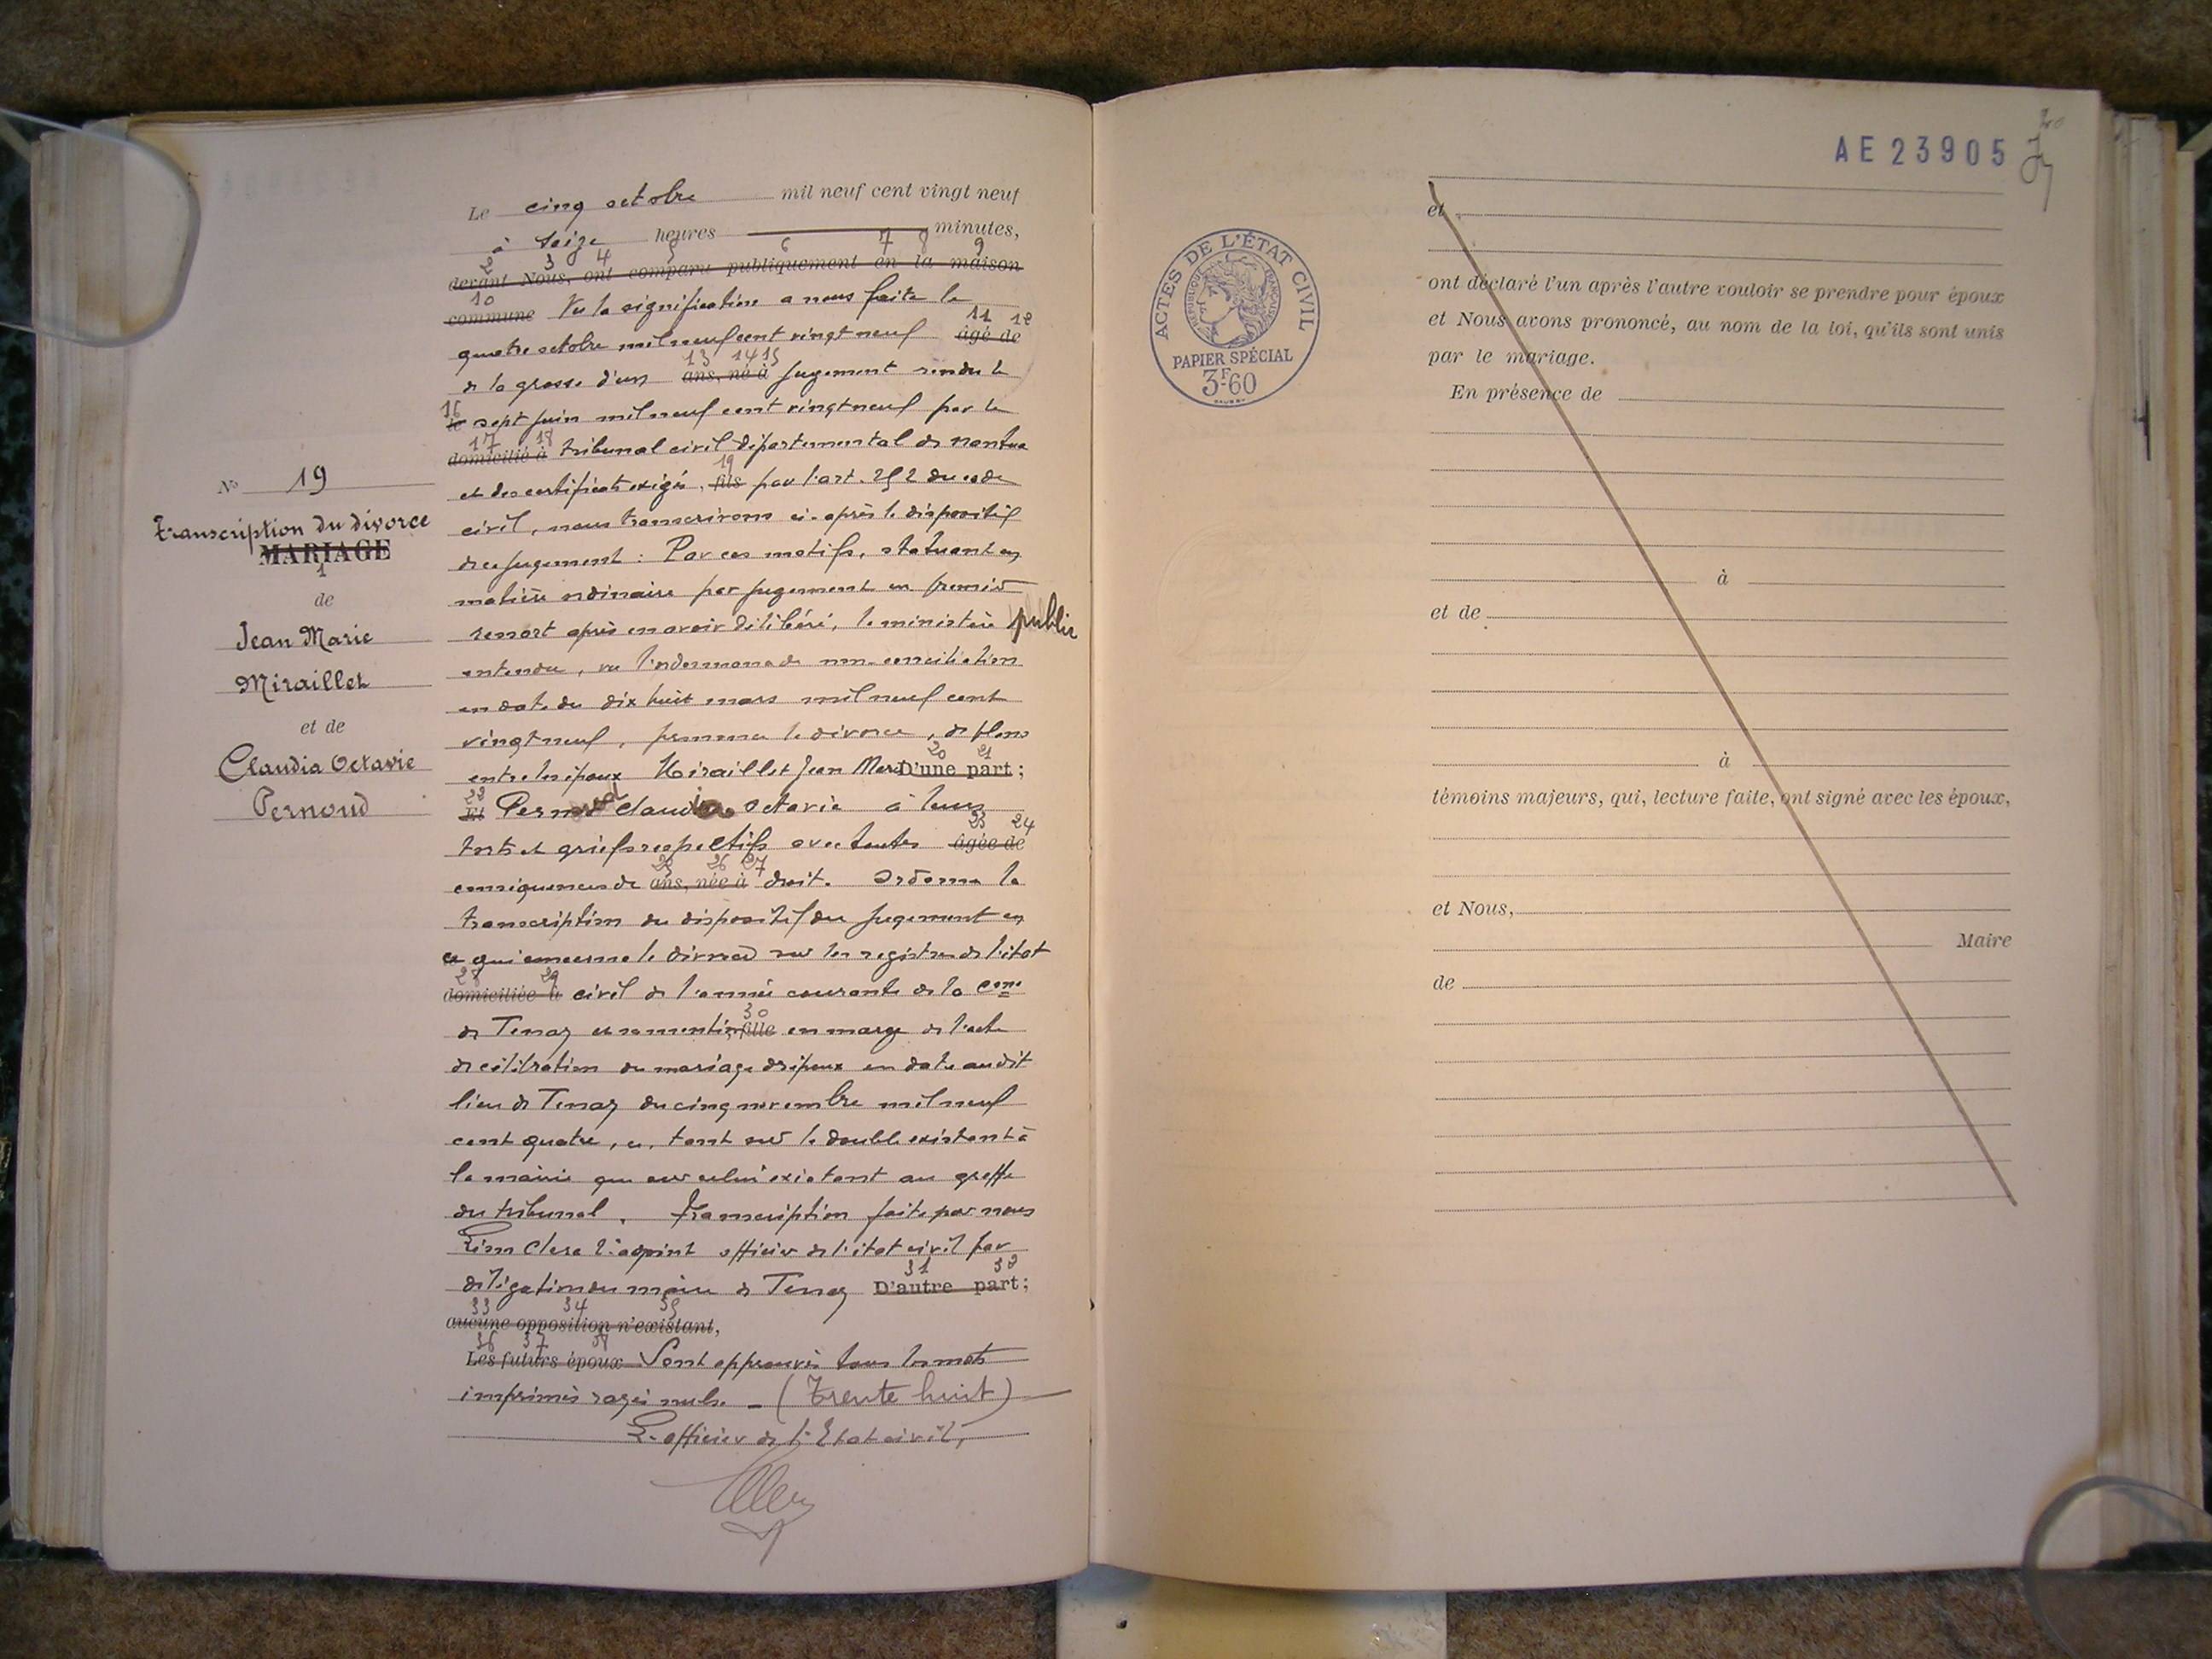 Le cinq octobre mil neuf cent vingt neuf
à seize heures minutes,
2 3 4 5 6 7 8 9
devant Nous, ont comparu publiquement en la maison
10
commune Vu la signification a nous faite le
11 12
quatre octobre mil neuf cent vingt neuf âgé de
13 14 15
de la grosse d'un ans, né à jugement rendu le
16
le sept juin mil neuf cent vingt neuf par le
17 18
domicilié à tribunal civil départemental de Nantua
19
et des certificats exigés, fils par l'art. 252 du code
civil, nous transcrivons ci-après le dispositif
de ce jugement : Par ces motifs, statuant en
matière ordinaire par jugement en premier
ressort après en avoir délibéré, le ministère public
entendu, vu l'ordonnance de non-conciliation
en date du dix huit mars mil neuf cent
vingt neuf, prononce le divorce, de plano
20 21
entre les époux Miraillet Jean Marie D'une part ;
22
Et Pernoud Claudia Octavie à leurs
23 24
torts et griefs respectifs avec toutes âgée de
25 26 27
conséquences de ans, née à droit. Ordonne la
transcription du dispositif du jugement en
ce qui concerne le divorce sur les registres de l'état
28 29
domiciliée à civil de l'année courante de la Cne
30
de Tenay et sa mention fille en marge de l'acte
de célébration du mariage des époux en date audit
lieu de Tenay du cinq novembre mil neuf
cent quatre, et, tant sur le double existant à
la mairie que sur celui existant au greffe
du tribunal. Transcription faite par nous
Clerc l'adjoint officier de l'état civil par
31 32
délégation du maire de Tenay D'autre part ;
33 34 35
aucune opposition n'existant,
36 37 38
Les futurs époux Sont approuvés tous les mots
imprimés rayés nuls. - (Trente huit)
L'officier de l'Etat civil,
No 19
Transcription du divorce
MARIAGE
1
de
Jean Marie
Miraillet
et de
Claudia Octavie
Pernoud
AE 23905
ACTES DE L'ÉTAT CIVIL
RÉPUBLIQUE FRANÇAISE
PAPIER SPÉCIAL
3F.60
et
ont déclaré l'un après l'autre vouloir se prendre pour époux
et Nous avons prononcé, au nom de la loi, qu'ils sont unis
par le mariage.
En présence de
à
et de
à
témoins majeurs, qui, lecture faite, ont signé avec les époux,
et Nous,
Maire
de